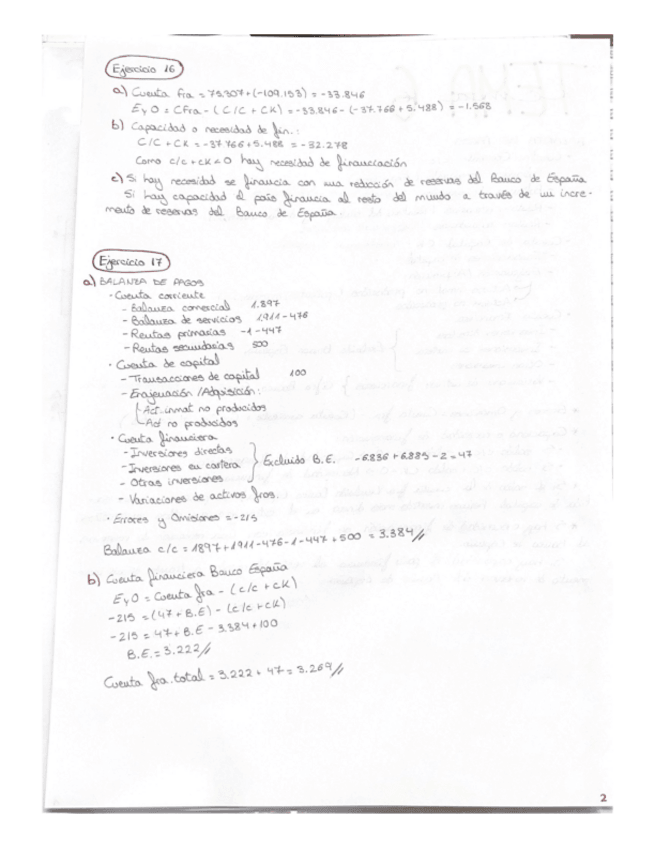 Ejercicio 16
a) Cuenta fra = 75.307 + (-109.153) = -33.846
EyO = CFra - (C/C + CK) = -33.846 - (-37.766 + 5.488) = -1.568
b) Capacidad o necesidad de fin.:
C/C + CK = -37.766 + 5.488 = -32.278
Como c/c + CK < 0 hay necesidad de financiación
c) Si hay necesidad se financia con una reducción de reservas del Banco de España
Si hay capacidad el país financia al resto del mundo a través de un incre-
mento de reservas del Banco de España
Ejercicio 17
a) BALANZA DE PAGOS
· Cuenta corriente
- Balanza comercial 1.897
- Balanza de servicios 1911-476
- Rentas primarias -1-447
- Rentas secundarias 500
· Cuenta de capital
- Transacciones de capital 100
- Enajenación/Adquisición:
Act. inmat no producidos
Act no producidos
· Cuenta financiera
- Inversiones directas
- Inversiones en cartera } Excluido B.E. -6.836 + 6.885 - 2 = 47
- Otras inversiones
- Variaciones de activos fros.
· Errores y Omisiones = -215
Balanza c/c = 1897 + 1911 - 476 - 1 - 447 + 500 = 3.384//
b) Cuenta financiera Banco España
EyO = Cuenta fra - (c/c + CK)
-215 = (47 + B.E) - (c/c + CK)
-215 = 47 + B.E - 3.384 + 100
B.E. = 3.222//
Cuenta fra. total = 3.222 + 47 = 3.269//
2